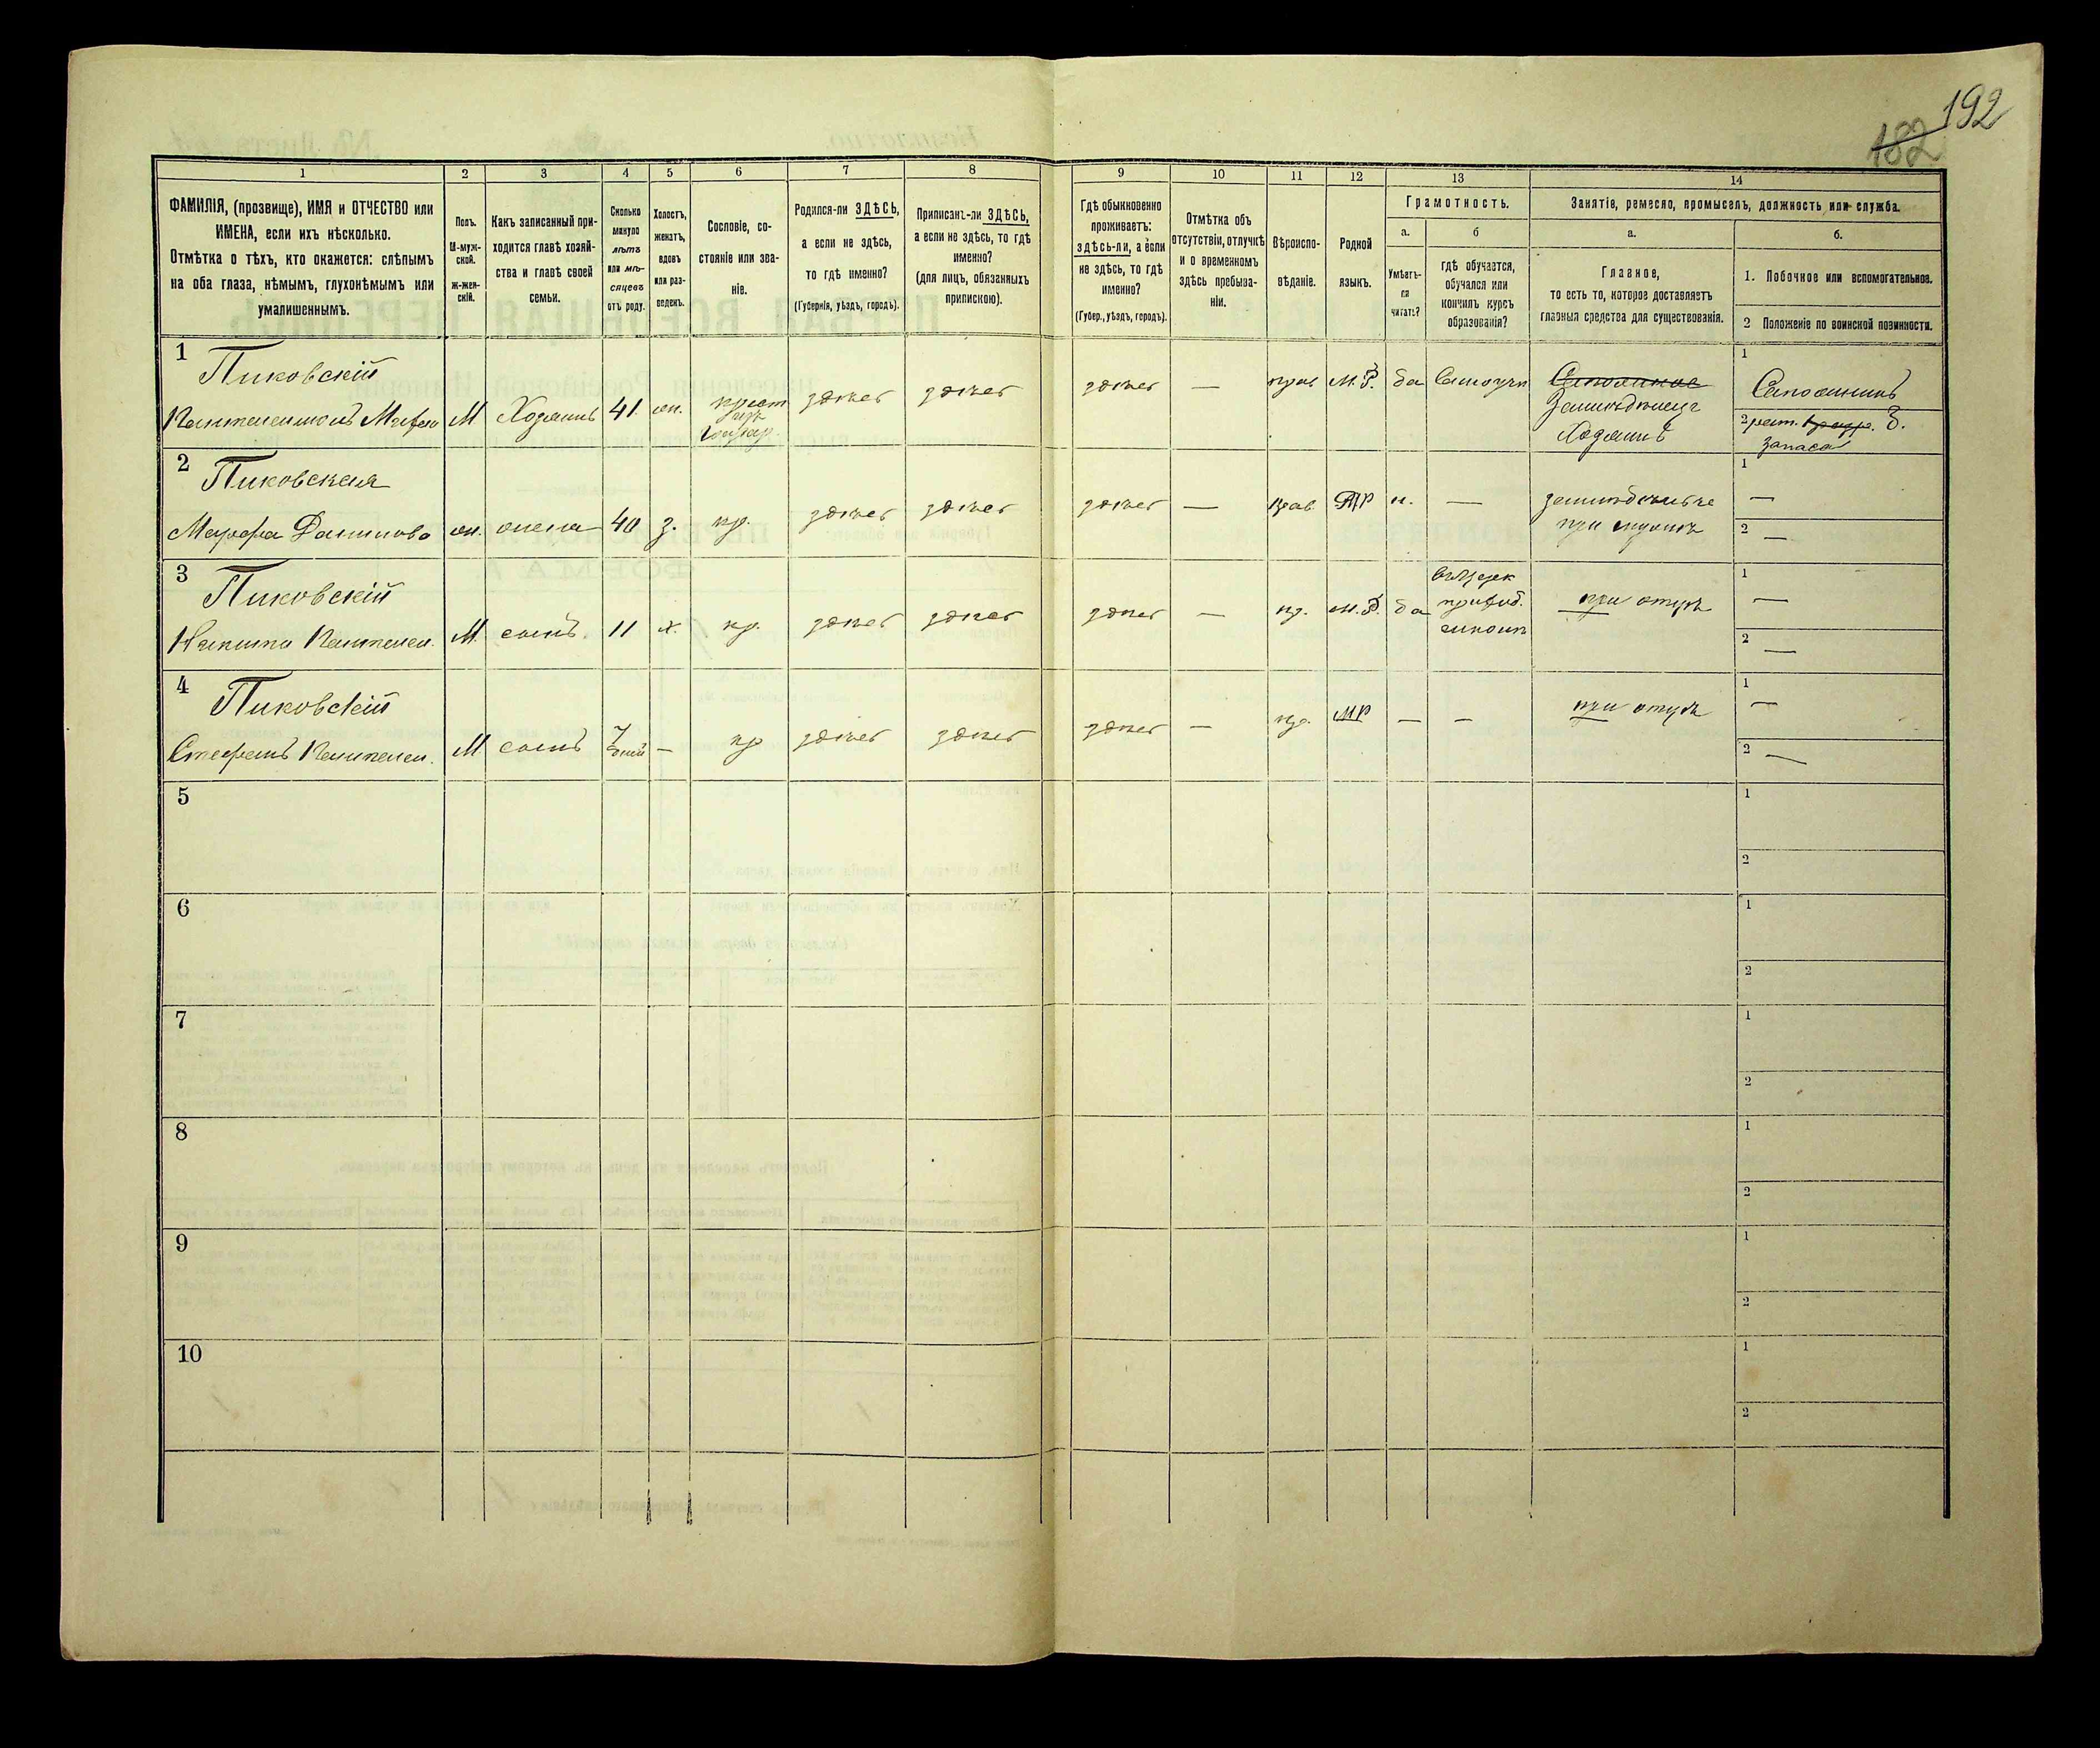 192
182
1
2
3
4
5
6
7
8
9
10
11
12
13
14
ФАМИЛІЯ, (прозвище), ИМЯ и ОТЧЕСТВО или
ИМЕНА, если ихъ нѣсколько.
Отмѣтка о тѣхъ, кто окажется: слѣпымъ
на оба глаза, нѣмымъ, глухонѣмымъ или
умалишеннымъ.
Полъ.
М-муж-
ской.
Ж-жен-
скій.
Какъ записанный при-
ходится главѣ хозяй-
ства и главѣ своей
семьи.
Сколько
минуло
лѣтъ
или мѣ-
сяцевъ
отъ роду.
Холостъ,
женатъ,
вдовъ
или раз-
веденъ.
Сословіе, со-
стояніе или зва-
ніе.
Родился-ли ЗДѢСЬ,
а если не здѣсь,
то гдѣ именно?
(Губернія, уѣздъ, городъ).
Приписанъ-ли ЗДѢСЬ,
а если не здѣсь, то гдѣ
именно?
(для лицъ, обязанныхъ
припискою).
Гдѣ обыкновенно
проживаетъ:
здѣсь-ли, а если
не здѣсь, то гдѣ
именно?
(Губер., уѣздъ, городъ).
Отмѣтка объ
отсутствіи, отлучкѣ
и о временномъ
здѣсь пребыва-
ніи.
Вѣроиспо-
вѣданіе.
Родной
языкъ.
Грамотность.
а.
Умѣетъ-
ли
читать?
б
гдѣ обучается,
обучался или
кончилъ курсъ
образованія?
Занятіе, ремесло, промыселъ, должность или служба.
а.
Главное,
то есть то, которое доставляетъ
главныя средства для существованія.
б.
1. Побочное или вспомогательное.
2 Положеніе по воинской повинности.
1
Пиковскій
М
Хозяинъ
41
здѣсь
здѣсь
здѣсь
—
прав
М.Р.
да
Хозяинъ
1
2
запаса
2
Пиковская
Марфа Данилова
жена
40
з.
кр.
здѣсь
здѣсь
здѣсь
—
прав.
МР
н.
—
при мужѣ
1
—
2
—
3
Пиковскій
Никита Пантелеи.
М.
сынъ
11
х.
кр.
здѣсь
здѣсь
здѣсь
—
пр.
М.Р.
да
при отцѣ
1
—
2
—
4
Пиковскій
Стефанъ Пантелеи.
М
сынъ
7
дней
—
кр
здѣсь
здѣсь
здѣсь
—
пр.
МР
—
—
при отцѣ
1
—
2
—
5
1
2
6
1
2
7
1
2
8
1
2
9
1
2
10
1
2